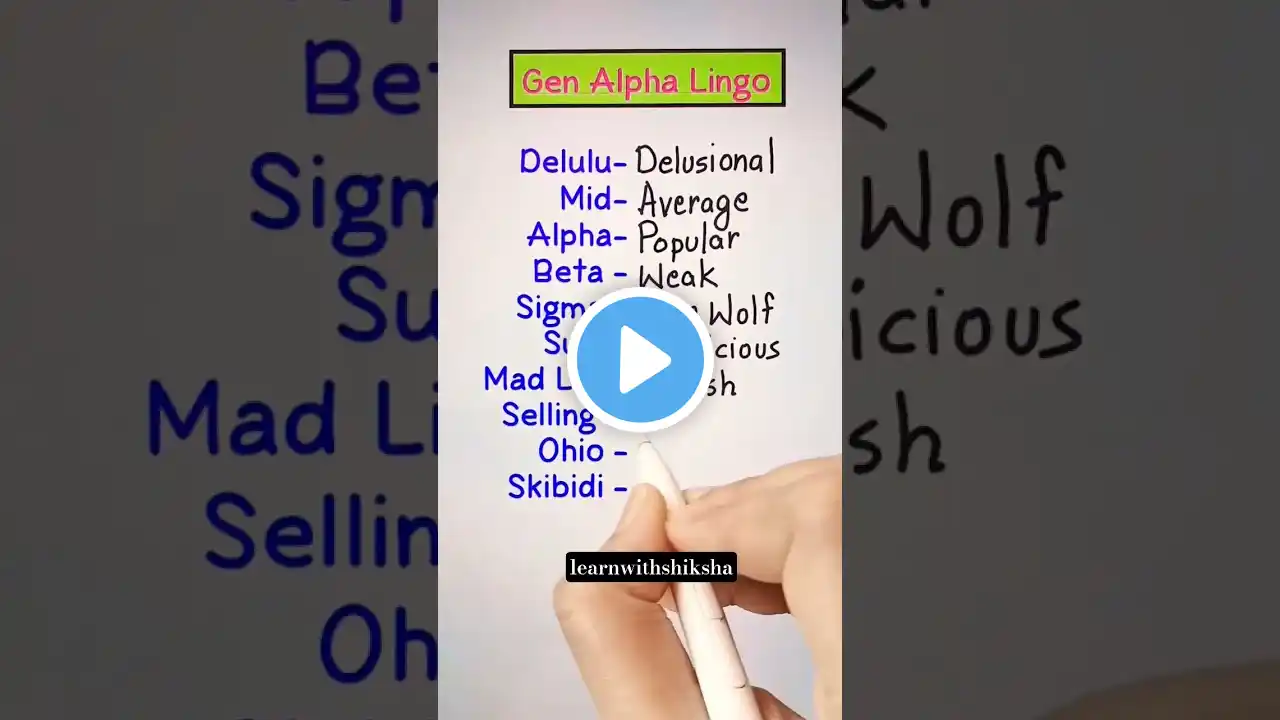 Gen Alpha Lingo
Delulu- Delusional
Mid- Average
Alpha- Popular
Beta - Weak
Wolf
Mad
Selling
Ohio -
Skibidi -
learnwithshiksha